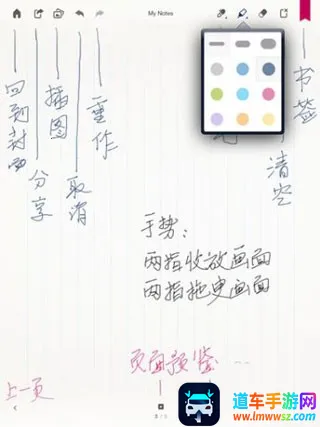 My Notes
回到封面
分享
插图
取消
重作
清空
书签
手势：
两指收放画面
两指拖曳画面
页面预览
上一页
道车手游网
www.lmwwsz.com